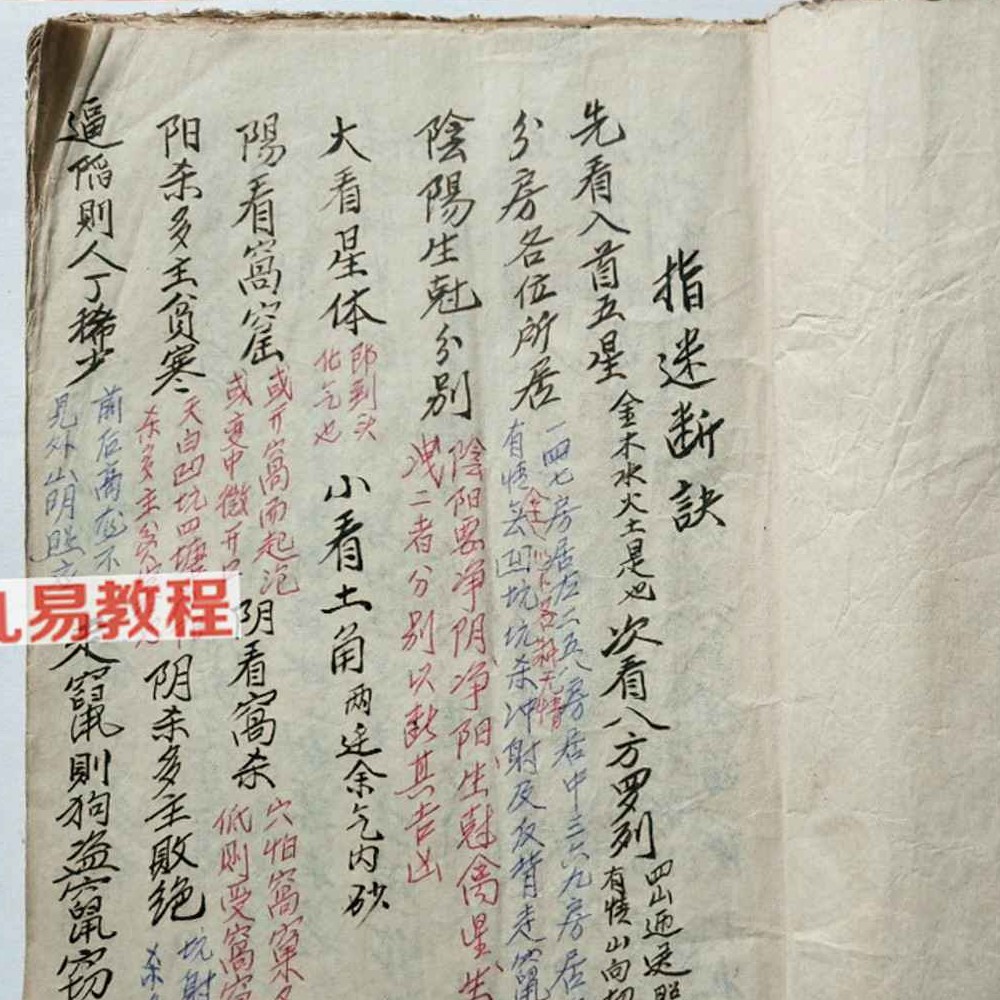 指迷断訣
先看入首五星
金木水火土是也
次看八方罗列
四山迎送照
有情山向
分房各位所居
一四七房居左二五八房居中三六九房居
有情無凹坑坑杀冲射反反背走窜
各新无情
陰陽生尅分别
陰阳要净阴净阳生尅禽星生
洩二者分别以断其吉凶
大看星体
即到头
化气也
小看土角
两边余气内砂
陽看窩窟
或开窩而起泡
或变中微开
阴看窩杀
穴怕窩窠
低则受窩
阳杀多主贫寒
天白凹坑四塘
杀多主贫
阴杀多主敗绝
坑射
杀
逼陷则人丁稀少
前后高龙不
見外山明照
走竄則狗盗竄窃
九易教程